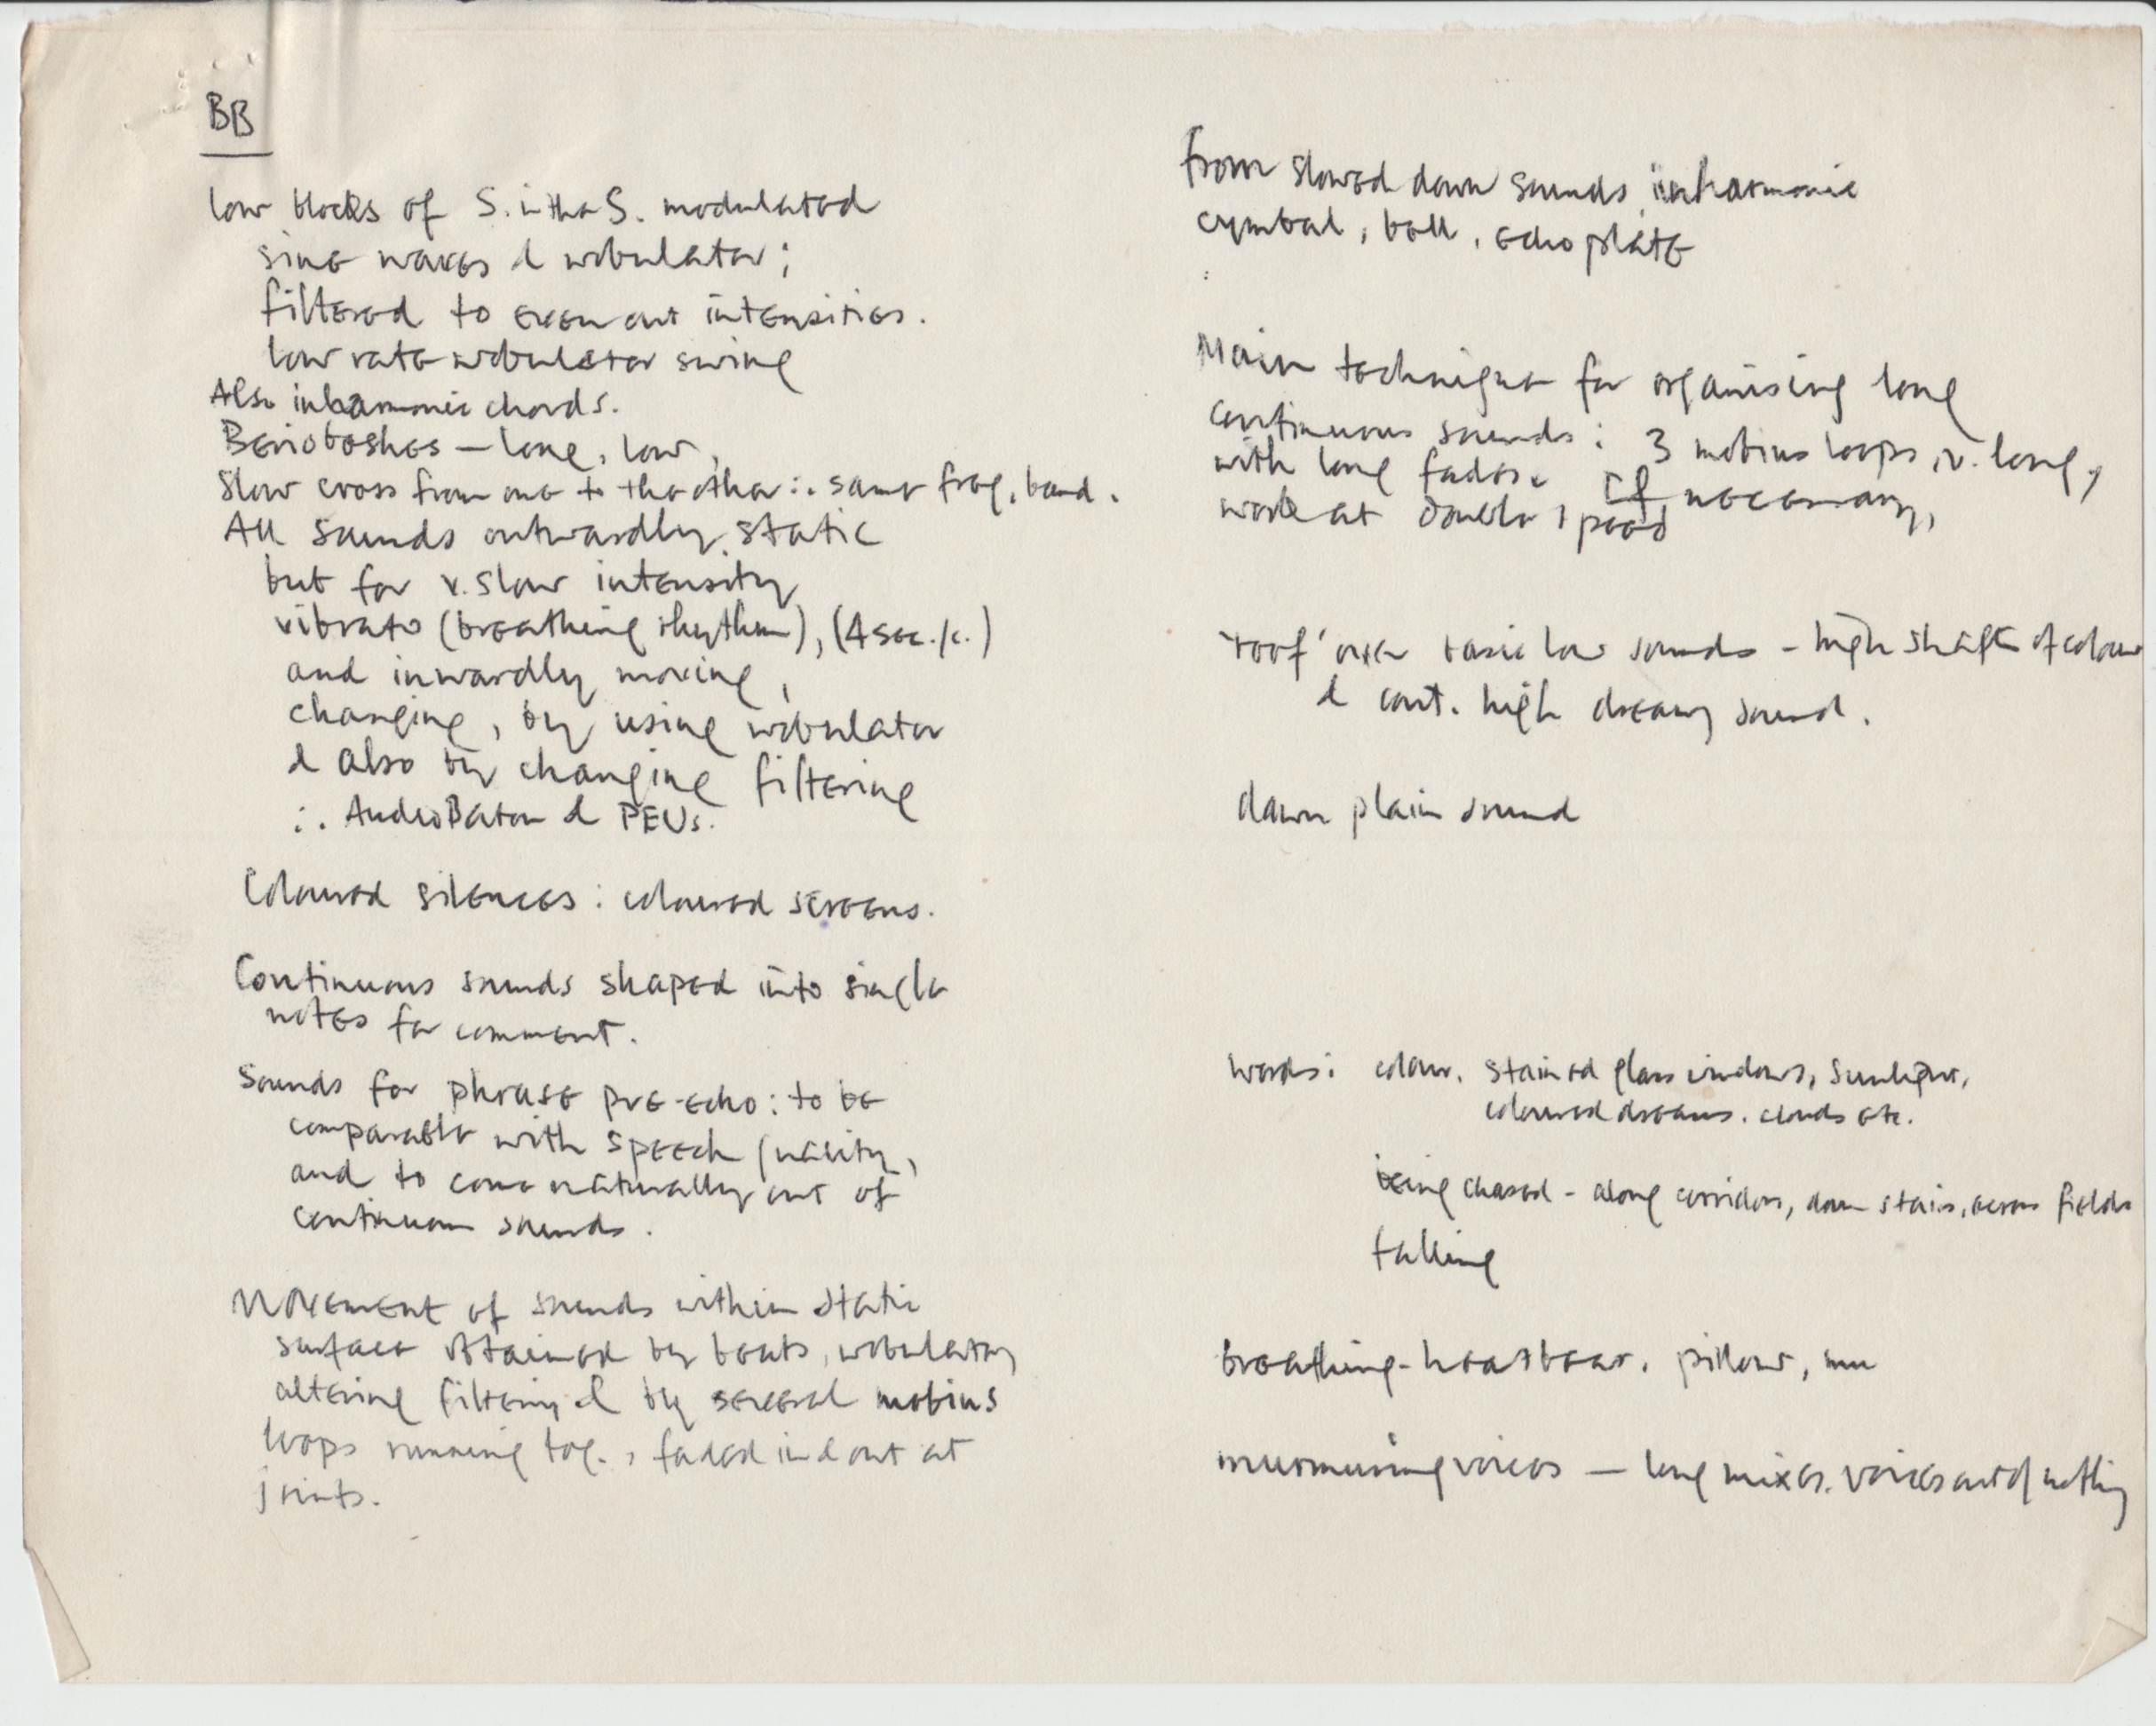 BB
low blocks of S. in the S. modulated
sine waves & wobulator;
filtered to even out intensities.
low rate wobulator swing
Also inharmonic chords.
Berioboshes — long, low,
Slow cross from one to the other ∴ same freq. band.
All sounds outwardly static
but for v. slow intensity
vibrato (breathing rhythm), (4 sec./c.)
and inwardly moving,
changing, by using wobulator
& also by changing filtering
∴ AudioBaton & PEUs.
Coloured silences : coloured screens.
Continuous sounds shaped into single
notes for comment.
Sounds for phrase pre-echo : to be
comparable with speech quality,
and to come naturally out of
continuum sounds.
Movement of sounds within static
surface obtained by beats, wobulator,
altering filtering & by several mobius
loops running tog., faded in & out at
joints.
from slowed down sounds, inharmonic
cymbal, bell, echo plate
Main technique for organising long
continuous sounds : 3 mobius loops, v. long,
with long fades. If necessary,
work at double speed
'roof' over basic low sounds - high shafts of colour
& cont. high dreamy sound.
dawn plain sound
words : colour. stained glass windows, sunlight,
coloured dreams. clouds etc.
being chased - along corridors, down stairs, across fields
falling
breathing - heartbeat. pillow,
murmuring voices — long mixes. voices out of nothing